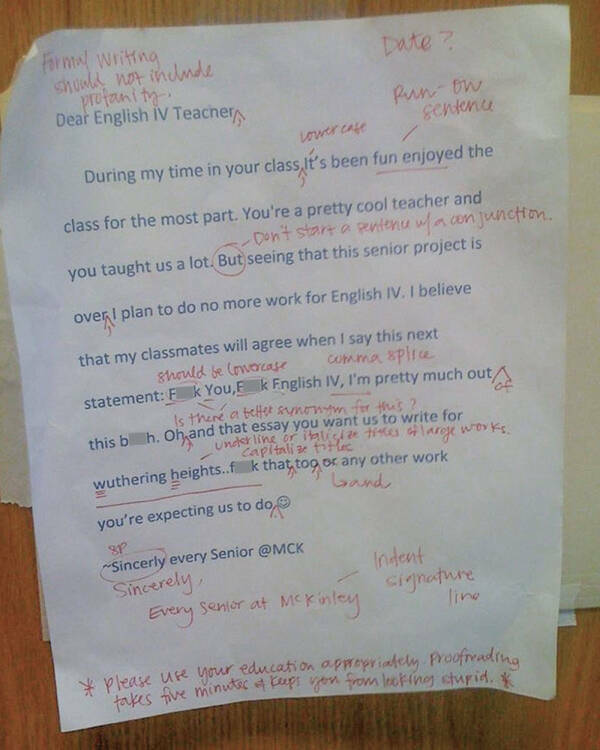 Formal writing
should not include
profanity.
Date?
Run-on
sentence
Dear English IV Teacher,
lowercase
During my time in your class, It's been fun enjoyed the
class for the most part. You're a pretty cool teacher and
Don't start a sentence w/ a conjunction.
you taught us a lot. But seeing that this senior project is
over, I plan to do no more work for English IV. I believe
that my classmates will agree when I say this next
should be lowercase
comma splice
statement: F k You,F k English IV, I'm pretty much out
of
Is there a better synonym for this?
this b h. Oh, and that essay you want us to write for
underline or italicize titles of large works.
capitalize titles
wuthering heights..f k that, too, or any other work
and
you're expecting us to do. ☺
SP
~Sincerly every Senior @MCK
Sincerely,
Every Senior at McKinley
Indent
signature
line
* Please use your education appropriately. Proofreading
takes five minutes & keeps you from looking stupid. *